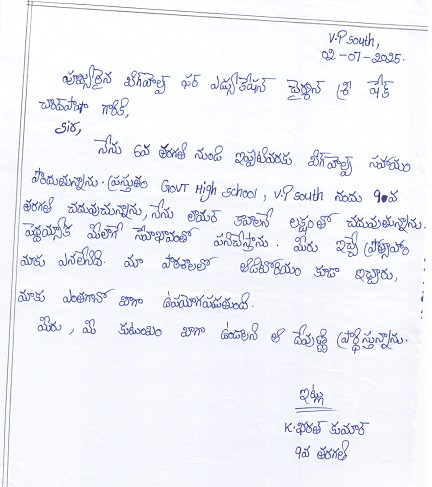 V.P South,
02-07-2025.
పూజ్యులైన బిగ్‌హెల్ప్ ఫర్ ఎడ్యుకేషన్ చైర్మన్ శ్రీ షేక్
చాంద్‌పాషా గారికి,
Sir,
నేను 6వ తరగతి నుండి ఇప్పటివరకు బిగ్‌హెల్ప్ సహాయం
పొందుతున్నాను. ప్రస్తుతం GOVT High school, V.P South నందు 9వ
తరగతి చదువుచున్నాను, నేను లాయర్ కావాలనే లక్ష్యంతో చదువుతున్నాను.
పెద్దయ్యాక మీలాగే సేవాభావంతో పనిచేస్తాను. మీరు ఇచ్చే ప్రోత్సాహం
మాకు ఎనలేనిది. మా పాఠశాలలో ఆడిటోరియం కూడా ఇచ్చారు,
మాకు ఎంతగానో బాగా ఉపయోగపడుతుంది.
మీరు, మీ కుటుంబం బాగా ఉండాలని ఆ దేవుణ్ణి ప్రార్థిస్తున్నాను.
ఇట్లు
K.భరత్ కుమార్
9వ తరగతి